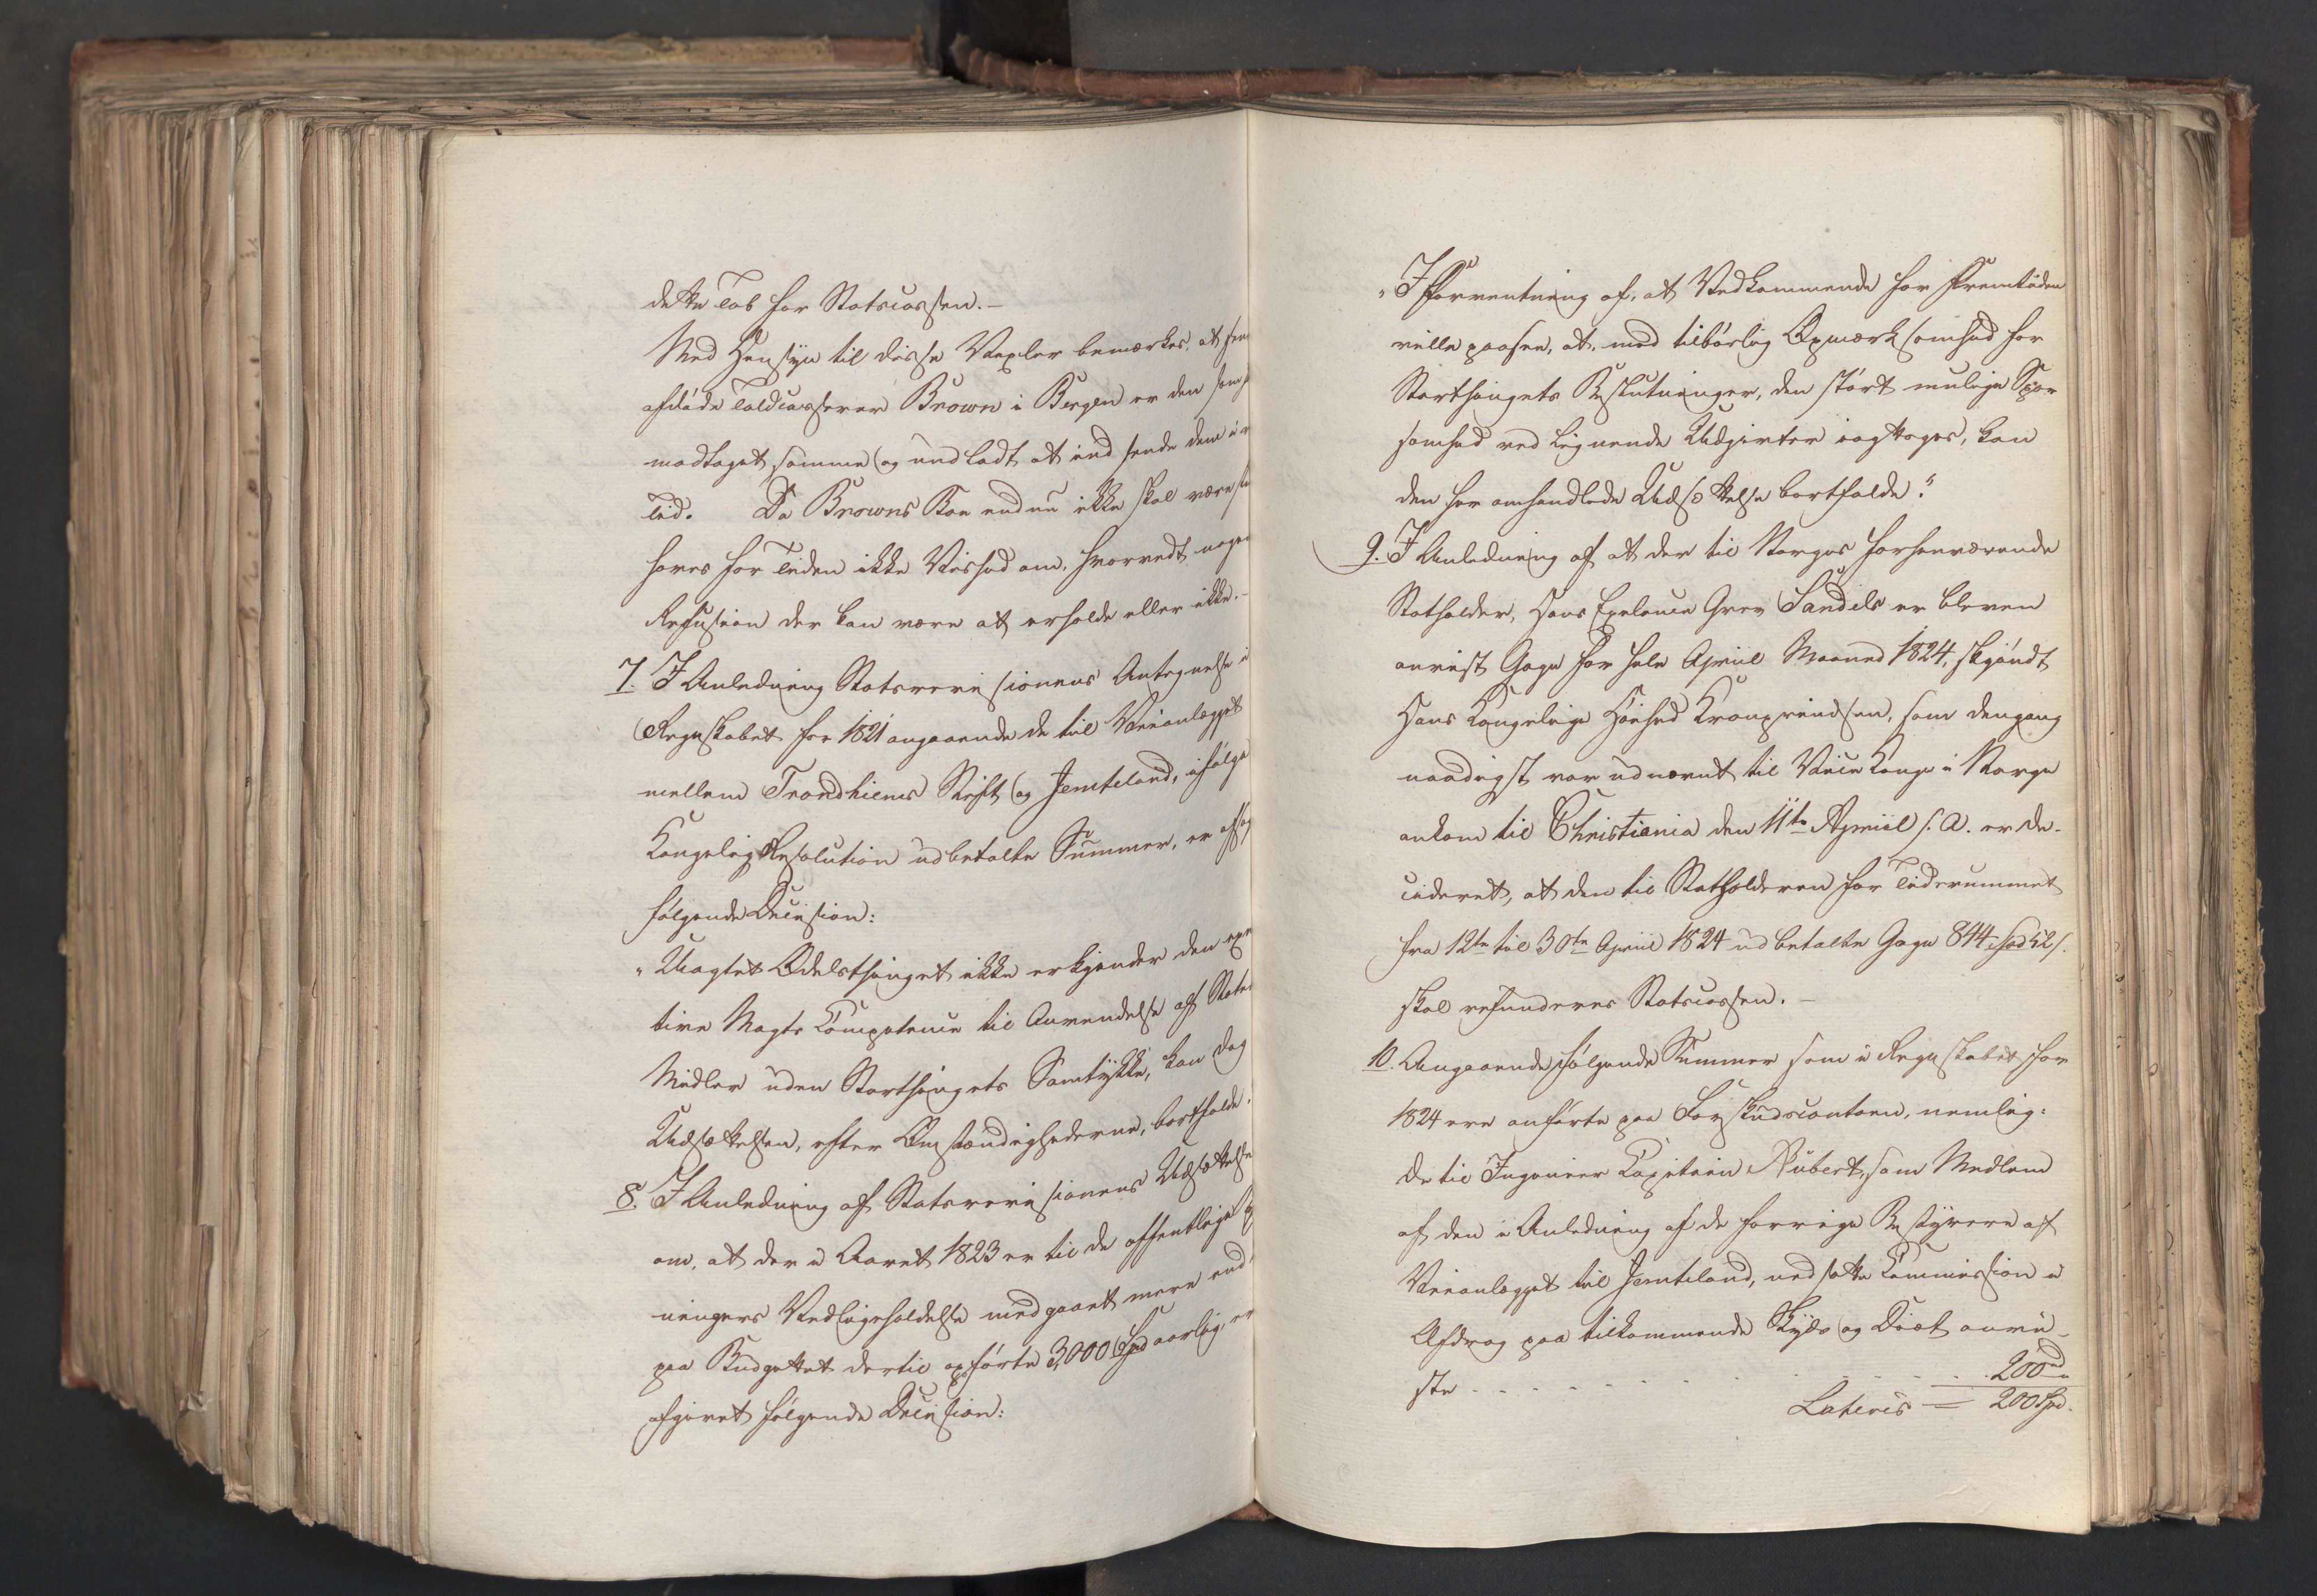 dette Tab for Statscassen. –
Med Hensyn til disse Vexler bemærkes, at
afdøde Toldcasserer Brown i Bergen er den som
modtaget samme og undladt at indsende dem i
Tid. Da Browns Boe endnu ikke skal være
haves for Tiden ikke Vished om, hvorvidt nogen
Refusion der kan være at erholde eller ikke. –
7. I Anledning Statsrevisionens Antegnelse i
Regnskabet for 1821 angaaende de til Veianlægget
mellem Trondhiems Stift og Jemteland, ifølge
Kongelig Resolution udbetalte Summer, er
følgende Decision:
„Uagtet Odelsthinget ikke erkjender den
tive Magts Competence til Anvendelse af
Midler uden Storthingets Samtykke, kan dog
Udsættelsen, efter Omstændighederne, bortfalde.
8. I Anledning af Statsrevisionens Udsættelse
om, at der i Aaret 1823 er til de offentlige
ningers Vedligeholdelse medgaaet mere end
paa Budgettet dertil opførte 3,000 Spd aarlig, er
afgivet følgende Decision:
„I Forventning af, at Vedkommende for Fremtiden
ville paasee, at, med tilbørlig Opmærksomhed for
Storthingets Beslutninger, den størst mulige Spar
somhed ved lignende Udgivter iagttages, kan
den her omhandlede Udsættelse bortfalde."
9. I Anledning af at der til Norges forhenværende
Statholder, Hans Exelence Grev Sandels er bleven
anvist Gage for hele April Maaned 1824, skjøndt
Hans Kongelige Høihed Kronprindsen, som dengang
naadigst var udnævnt til Vice Konge i Norge
ankom til Christiania den 11te April s. A. er de-
cideret, at den til Statholderen for Tidsrummet
fra 12te til 30te April 1824 udbetalte Gage 844 Spd 52 s.
skal refunderes Statscassen. –
10. Angaaende følgende Summer som i Regnskabet for
1824 ere anførte paa Forskudscontoen, nemlig:
de til Ingenieur Capitain Aubert, som Medlem
af den i Anledning af de forrige Bestyrere af
Veianlægget til Jemteland, nedsatte Commission i
Afdrag paa tilkommende Skyds og Diæt anvi-
ste . . . . . . . . . . . 200 "
Lateris = 200 Spd.